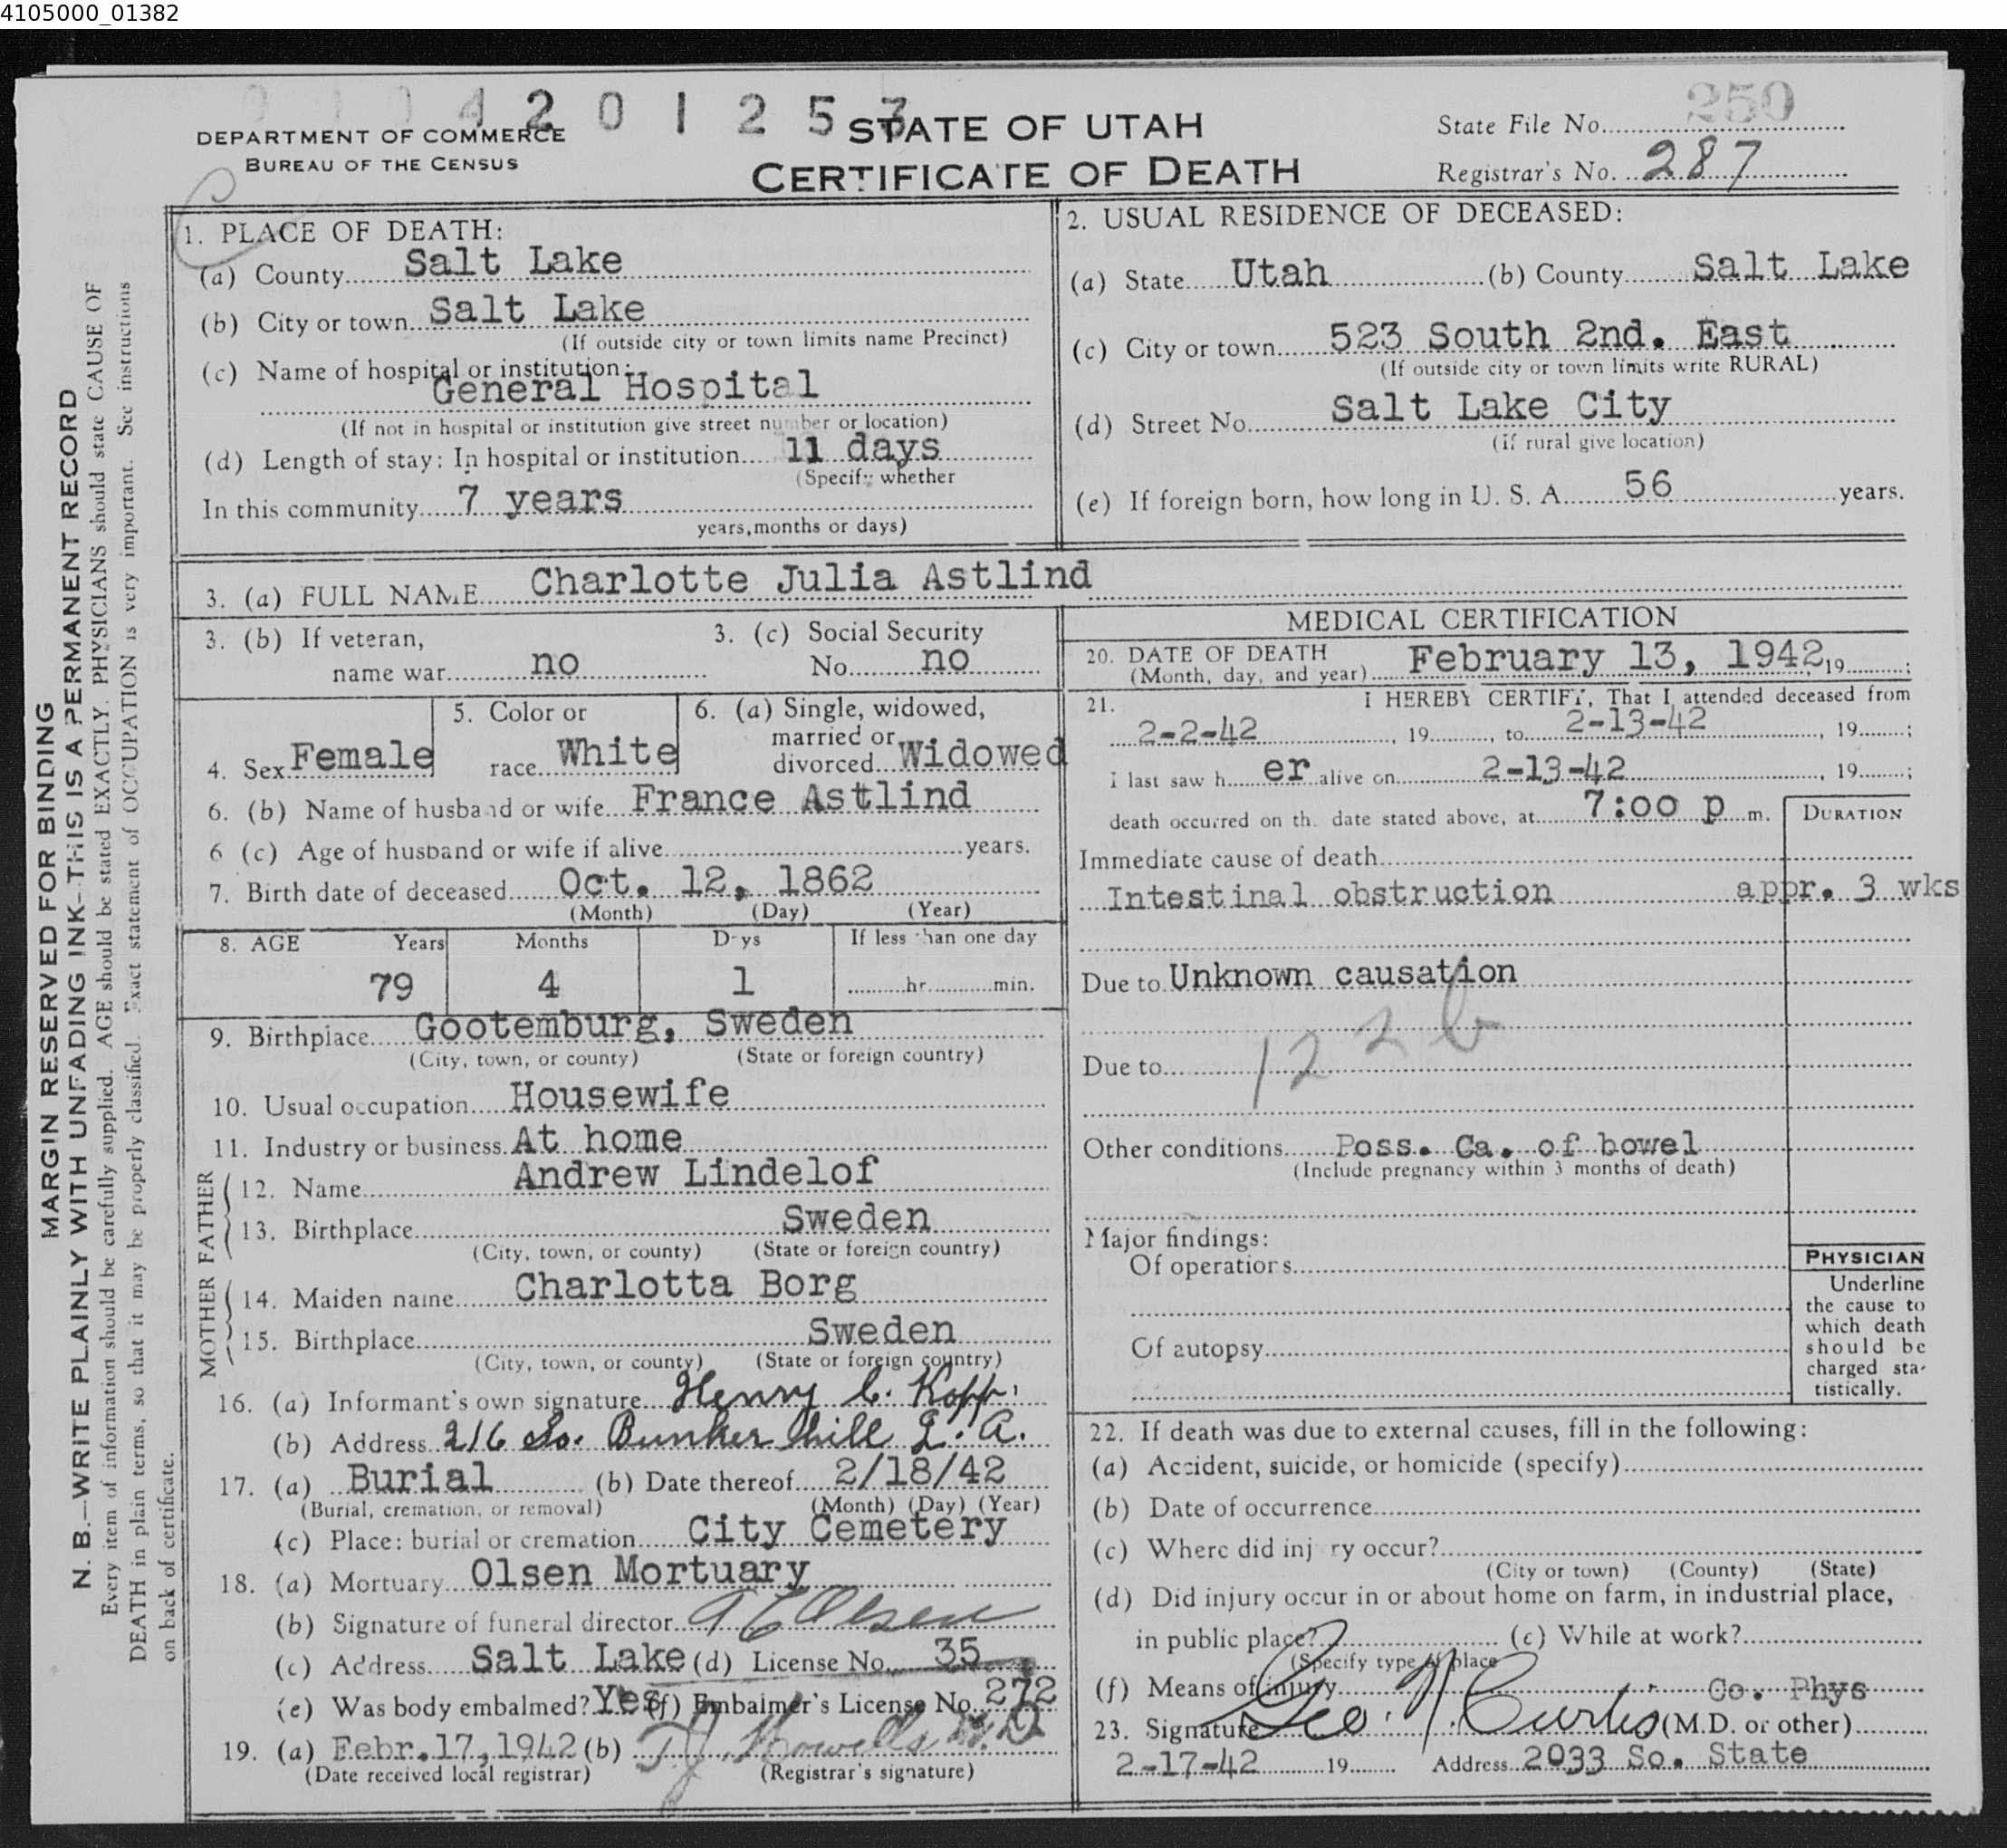 4105000_01382
420125
250
DEPARTMENT OF COMMERCE
BUREAU OF THE CENSUS
STATE OF UTAH
CERTIFICATE OF DEATH
State File No.
Registrar's No. 287
1. PLACE OF DEATH:
(a) County Salt Lake
(b) City or town Salt Lake
(If outside city or town limits name Precinct)
(c) Name of hospital or institution:
General Hospital
(If not in hospital or institution give street number or location)
(d) Length of stay: In hospital or institution 11 days
(Specify whether
In this community 7 years
years, months or days)
2. USUAL RESIDENCE OF DECEASED:
(a) State Utah (b) County Salt Lake
(c) City or town 523 South 2nd. East
(If outside city or town limits write RURAL)
(d) Street No. Salt Lake City
(if rural give location)
(e) If foreign born, how long in U. S. A. 56 years.
3. (a) FULL NAME Charlotte Julia Astlind
3. (b) If veteran,
name war no
3. (c) Social Security
No. no
4. Sex Female
5. Color or
race White
6. (a) Single, widowed,
married or
divorced Widowed
6. (b) Name of husband or wife France Astlind
6 (c) Age of husband or wife if alive years.
7. Birth date of deceased Oct. 12, 1862
(Month) (Day) (Year)
8. AGE Years Months Days If less than one day
79 4 1 hr. min.
9. Birthplace Gootemburg, Sweden
(City, town, or county) (State or foreign country)
10. Usual occupation Housewife
11. Industry or business At home
FATHER
12. Name Andrew Lindelof
13. Birthplace Sweden
(City, town, or county) (State or foreign country)
MOTHER
14. Maiden name Charlotta Borg
15. Birthplace Sweden
(City, town, or county) (State or foreign country)
16. (a) Informant's own signature Henry C. Kopp
(b) Address 216 So. Bunker Hill L. A.
17. (a) Burial (b) Date thereof 2/18/42
(Burial, cremation, or removal) (Month) (Day) (Year)
(c) Place: burial or cremation City Cemetery
18. (a) Mortuary Olsen Mortuary
(b) Signature of funeral director Olsen
(c) Address Salt Lake (d) License No. 35
(e) Was body embalmed? Yes (f) Embalmer's License No. 272
19. (a) Febr. 17, 1942 (b) T. J. Howells M.D
(Date received local registrar) (Registrar's signature)
MEDICAL CERTIFICATION
20. DATE OF DEATH
(Month, day, and year) February 13, 1942, 19 ;
21. I HEREBY CERTIFY, That I attended deceased from
2-2-42, 19 , to 2-13-42, 19 ;
I last saw her alive on 2-13-42, 19 ;
death occurred on the date stated above, at 7:00 p m.
DURATION
Immediate cause of death
Intestinal obstruction appr. 3 wks
Due to Unknown causation
122b
Due to
Other conditions Poss. Ca. of bowel
(Include pregnancy within 3 months of death)
Major findings:
Of operations
Of autopsy
PHYSICIAN
Underline
the cause to
which death
should be
charged sta-
tistically.
22. If death was due to external causes, fill in the following:
(a) Accident, suicide, or homicide (specify)
(b) Date of occurrence
(c) Where did injury occur?
(City or town) (County) (State)
(d) Did injury occur in or about home on farm, in industrial place,
in public place? (e) While at work?
(Specify type of place
(f) Means of injury Co. Phys
23. Signature Geo. N Curtis (M.D. or other)
2-17-42 19 Address 2033 So. State
MARGIN RESERVED FOR BINDING
N. B.—WRITE PLAINLY WITH UNFADING INK—THIS IS A PERMANENT RECORD
Every item of information should be carefully supplied. AGE should be stated EXACTLY. PHYSICIANS should state CAUSE OF
DEATH in plain terms, so that it may be properly classified. Exact statement of OCCUPATION is very important. See instructions
on back of certificate.